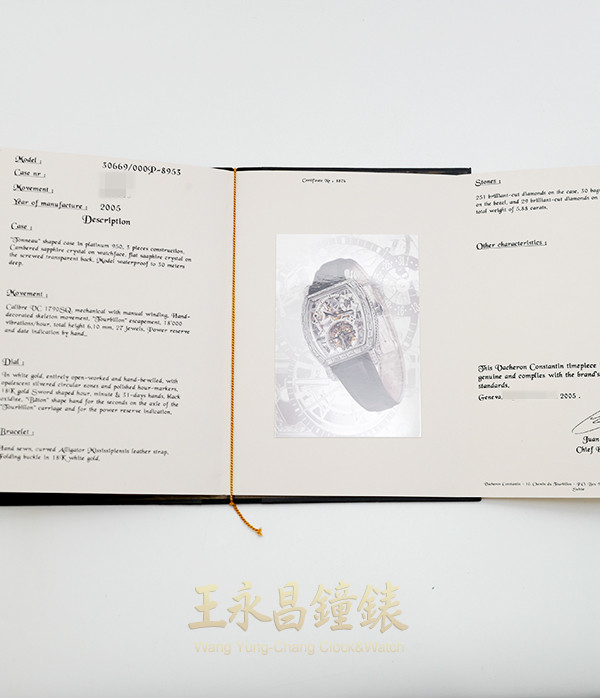 Model :
30669/000P-8953
Case nr :
Movement :
Year of manufacture : 2005
Description
Case :
"Tonneau" shaped case in platinum 950, 3 pieces construction.
Cambered sapphire crystal on watchface, flat sapphire crystal on
the screwed transparent back. Model waterproof to 30 meters
deep.
Movement :
Calibre VC 1790SQ, mechanical with manual winding. Hand-
decorated skeleton movement. "Tourbillon" escapement, 18'000
vibrations/hour, total height 6,10 mm, 27 jewels. Power reserve
and date indication by hand.
Dial :
In white gold, entirely open-worked and hand-bevelled, with
opalescent silvered circular zones and polished hour-markers.
18K gold Sword shaped hour, minute & 31-days hands, black
oxidine. "Bâton" shape hand for the seconds on the axle of the
"Tourbillon" carriage and for the power reserve indication.
Bracelet :
Hand sewn, curved Alligator Mississipiensis leather strap.
Folding buckle in 18K white gold.
Certificate Nr : 8876
Stones :
251 brilliant-cut diamonds on the case, 30
on the bezel, and 29 brilliant-cut diamonds on
total weight of 5.88 carats.
Other characteristics :
This Vacheron Constantin timepiece
genuine and complies with the brand's
standards.
Geneva, 2005 .
Juan
Chief
Vacheron Constantin - 10, Chemin du Tourbillon - P.O. Box
王永昌鐘錶
Wang Yung-Chang Clock&Watch